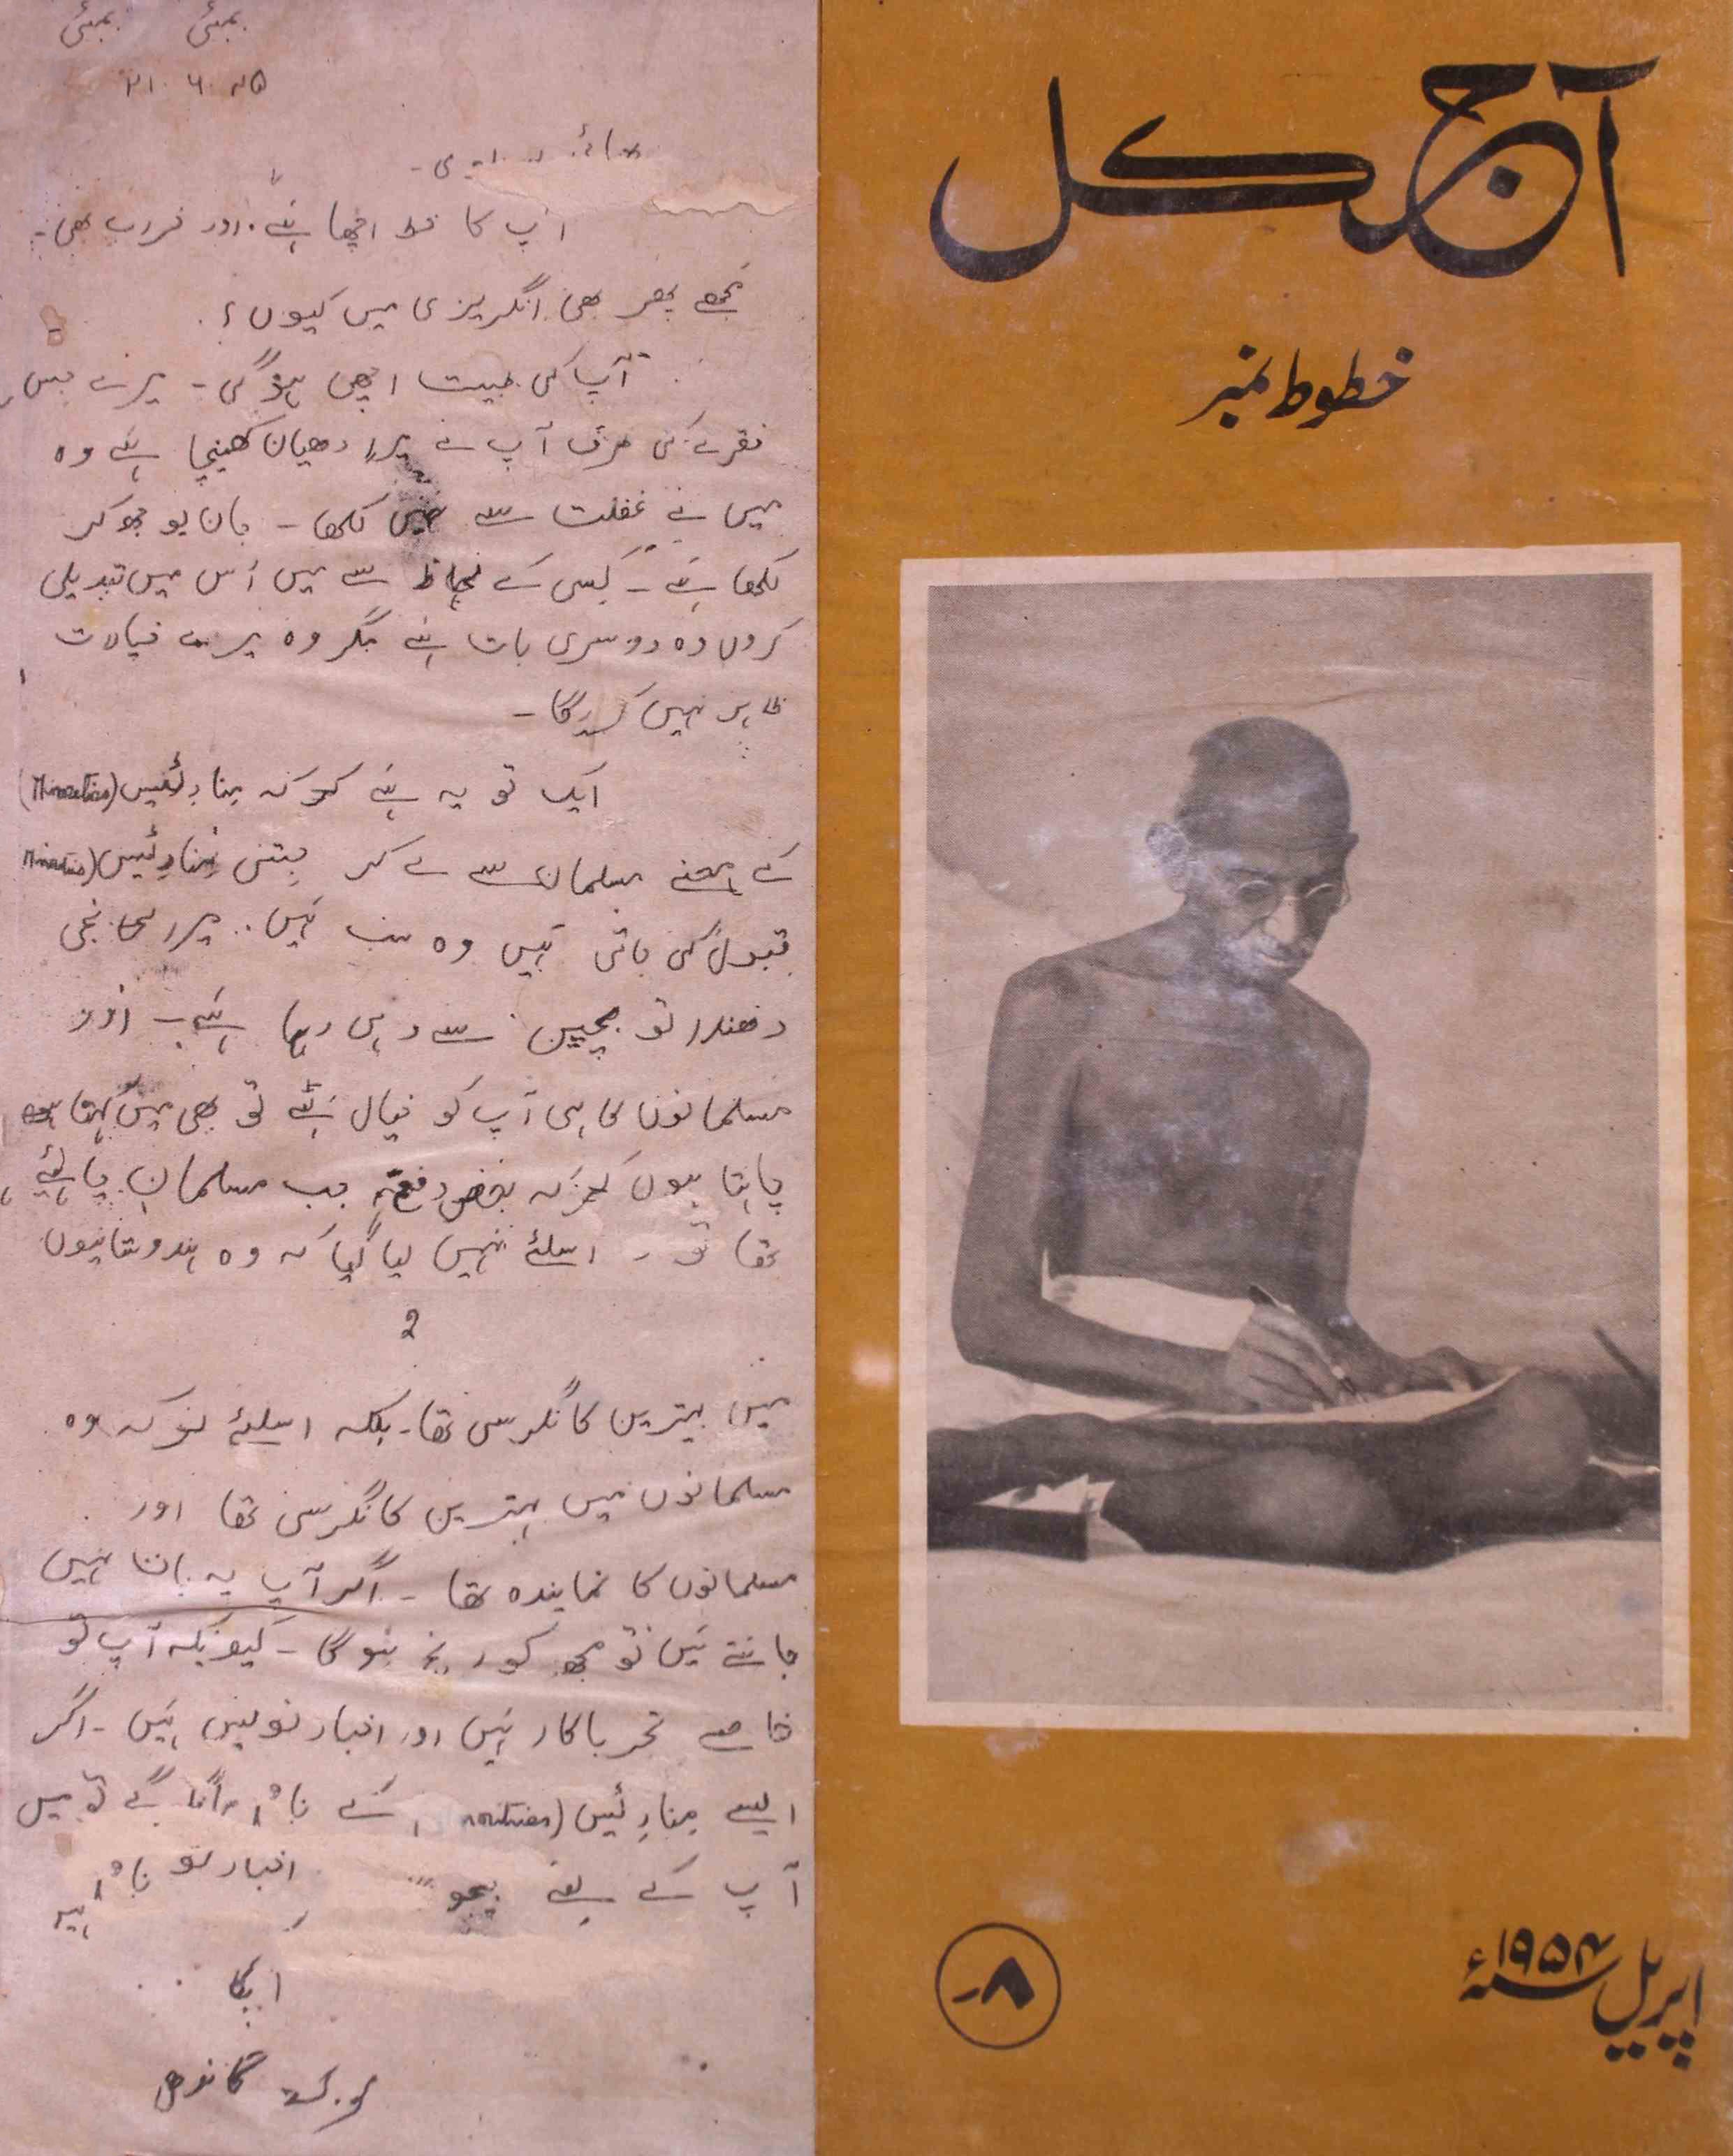 آج کل
خطوط نمبر
اپریل ۱۹۵۴ء
۸ر
بمبئی بمبئی
۲۱. ۶. ۴۵
آپ کا خط اچھا ہے. اور خراب بھی۔
مجھے پھر بھی انگریزی میں کیوں؟
آپ کی طبیت اچھی ہوگی ۔ میرے جس
فقرے کی طرف آپ نے میرا دھیان کھینچا ہے وہ
میں نے غفلت سے نہیں لکھا ۔ جان بوجھ کر
لکھا ہے ۔ کسی کے لحاظ سے میں اُس میں تبدیلی
کروں وہ دوسری بات ہے مگر وہ میرے خیالات
ظاہر نہیں کریگا ۔
ایک تو یہ ہے کہ منارٹیس (Minorities)
کے معنے مسلمان سے لے کر جتنی منارٹیس (Minorities
قبول کی جاتی ہیں وہ سب ہیں. میرا
دھندا تو بچپن سے وہی رہا ہے ۔ اور
مسلمانوں کا ہی آپ کو خیال ہے تو بھی میں کہنا
چاہتا ہوں کہ بعض دفعہ جب مسلمان چاہئے
تھا تو اسلئے نہیں لیا گیا کہ وہ ہندوستانیوں
2
میں بہترین کانگرسی تھا۔ بلکہ اسلئے کہ وہ
مسلمانوں میں بہترین کانگرسی تھا اور
مسلمانوں کا نمایندہ تھا ۔ اگر آپ یہ بات نہیں
جانتے ہیں تو مجھ کو رنج ہوگا ۔ کیونکہ آپ تو
خاصے تجرباکار ہیں اور اخبار نویس ہیں ۔ اگر
ایسے منارٹیس (norities کے نام مانگا گے تو میں
آپ کے لئے بھیجو اخبار نام
آپکا
م. ک. گاندھی